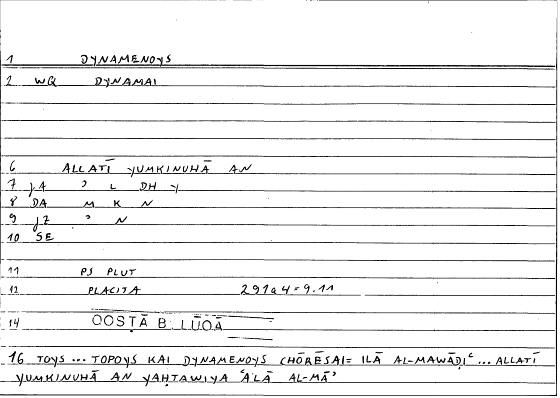 1 DYNAMENOYS
2 WQ DYNAMAI
6 ALLATĪ YUMKINUHĀ AN
7 JA ʾ L DH Y
8 DA M K N
9 JZ ʾ N
10 SE
11 PS PLUT
12 PLACITA 291a4=9.11
14 QOSṬĀ B. LŪQĀ
16 TOYS ... TOPOYS KAI DYNAMENOYS CHŌRĒSAI= ILĀ AL-MAWĀḌIʿ ... ALLATĪ
YUMKINUHĀ AN YAḤTAWIYA ʿALĀ AL-MĀʾ